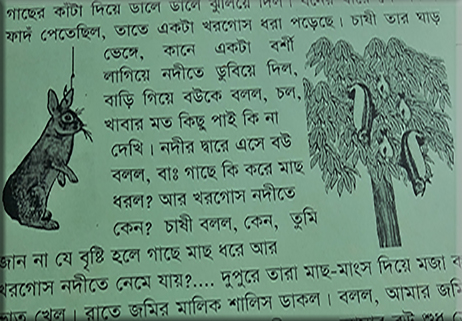 গাছের কাঁটা দিয়ে ডালে ডালে ঝুলিয়ে দিল।
ফাঁদ পেতেছিল, তাতে একটা খরগোস ধরা পড়েছে। চাষী তার ঘাড়
ভেঙ্গে, কানে একটা বর্শী
লাগিয়ে নদীতে ডুবিয়ে দিল,
বাড়ি গিয়ে বউকে বলল, চল,
খাবার মত কিছু পাই কি না
দেখি। নদীর দ্বারে এসে বউ
বলল, বাঃ গাছে কি করে মাছ
ধরল? আর খরগোস নদীতে
কেন? চাষী বলল, কেন, তুমি
জান না যে বৃষ্টি হলে গাছে মাছ ধরে আর
খরগোস নদীতে নেমে যায়?.... দুপুরে তারা মাছ-মাংস দিয়ে মজা
ভাত খেল। রাতে জমির মালিক শালিস ডাকল। বলল, আমার জমি